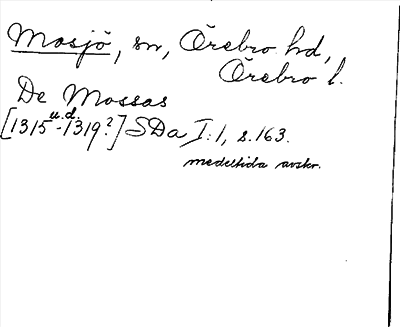 Mosjö, sn, Örebro hd,
Örebro l.
De Mossas
u.d.
[1315-1319?] SDa I:1, s.163.
medeltida avskr.